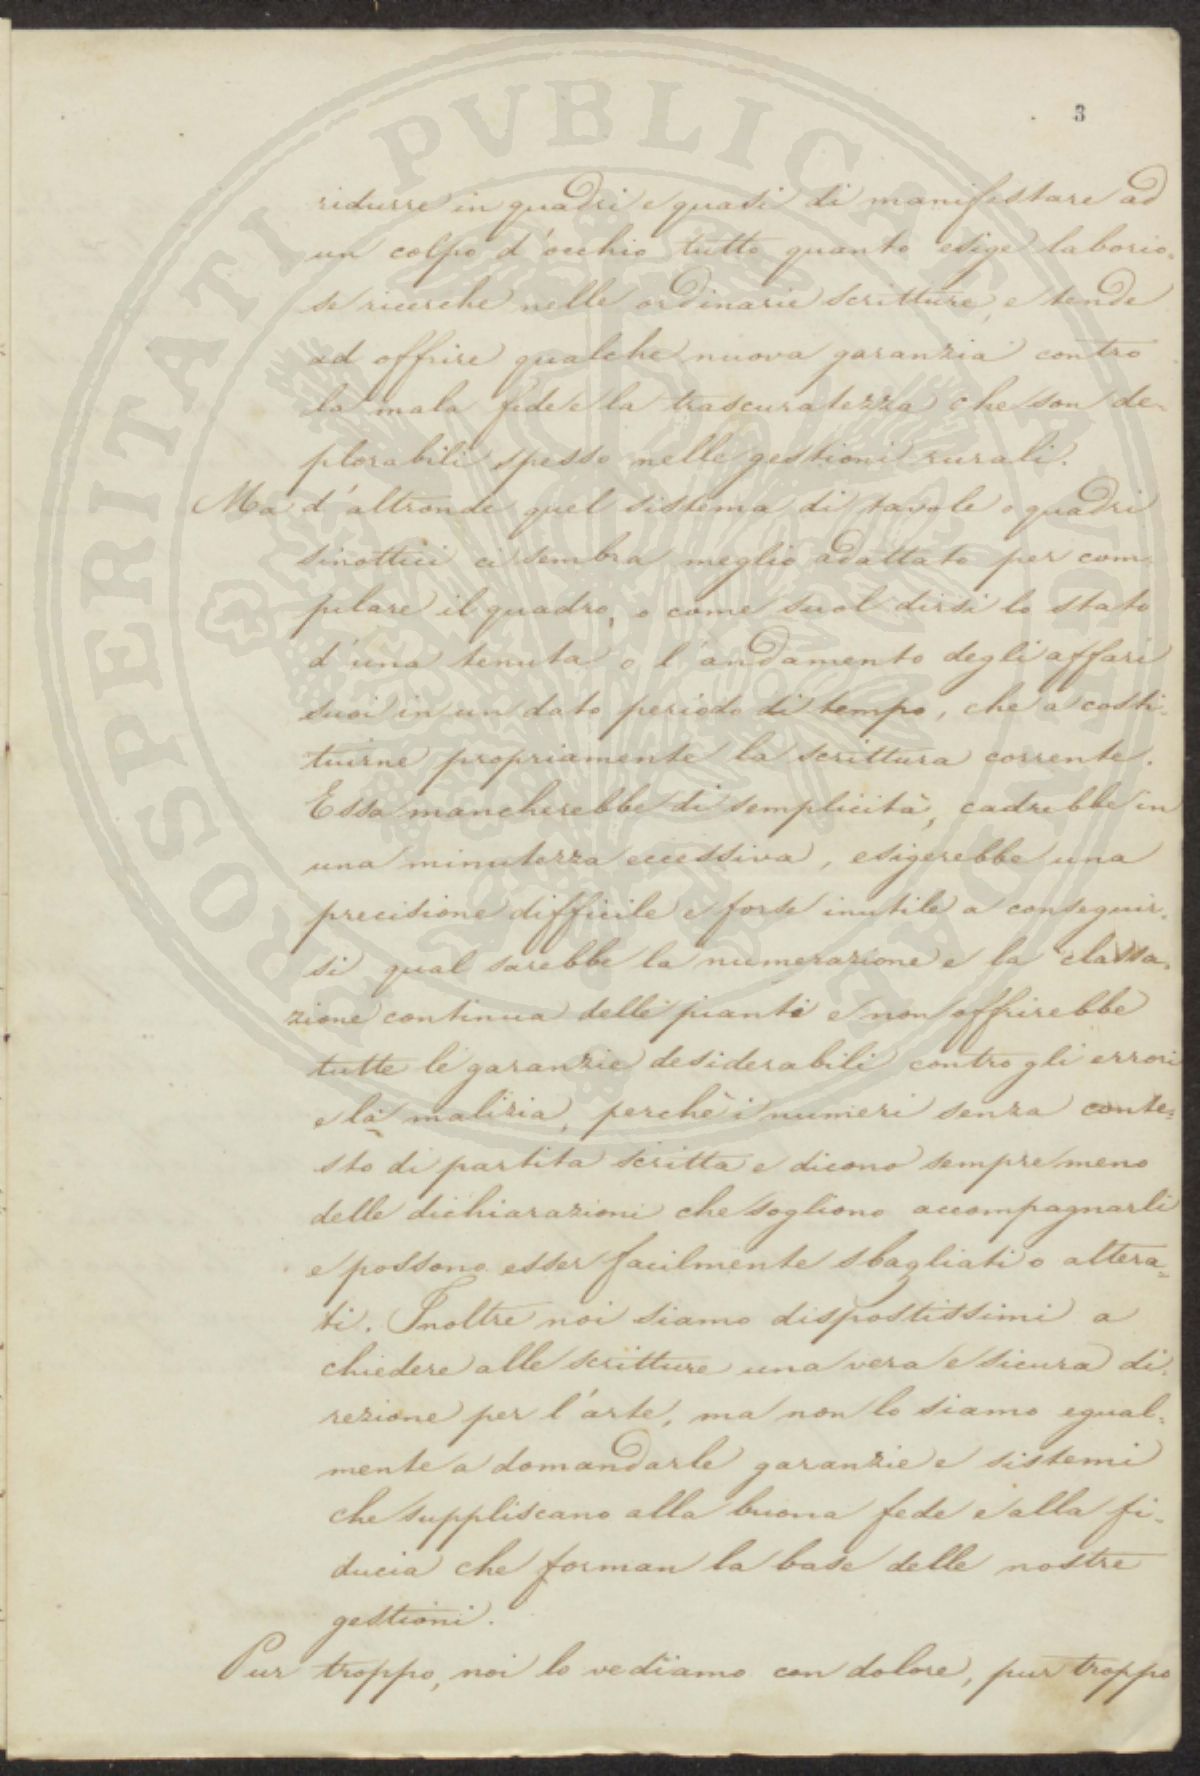 PROSPERITATI PVBLICAE AVGENDAE
3
ridurre in quadri e quasi di manifestare ad
un colpo d'occhio tutto quanto esige laborio-
se ricerche nelle ordinarie scritture, e tende
ad offrire qualche nuova garanzia contro
la mala fede e la trascuratezza che son de-
plorabili spesso nelle gestioni rurali.
Ma d'altronde quel sistema di tavole o quadri
sinottici ci sembra meglio adattato per com
pilare il quadro, o come suol dirsi lo stato
d'una tenuta o l'andamento degli affari
suoi in un dato periodo di tempo, che a costi-
tuirne propriamente la scrittura corrente.
Essa mancherebbe di semplicità, cadrebbe in
una minutezza eccessiva, esigerebbe una
precisione difficile e forse inutile a conseguir-
si qual sarebbe la numerazione e la classa-
zione continua delle piante e non offrirebbe
tutte le garanzie desiderabili contro gli errori
e la malizia, perchè i numeri senza conte-
sto di partita scritta e dicono sempre meno
delle dichiarazioni che sogliono accompagnarli
e possono esser facilmente sbagliati o altera-
ti. Inoltre noi siamo dispostissimi a
chiedere alle scritture una vera e sicura di-
rezione per l'arte, ma non lo siamo egual-
mente a domandarle garanzie e sistemi
che suppliscano alla buona fede e alla fi-
ducia che forman la base delle nostre
gestioni.
Pur troppo, noi lo vediamo con dolore, pur troppo